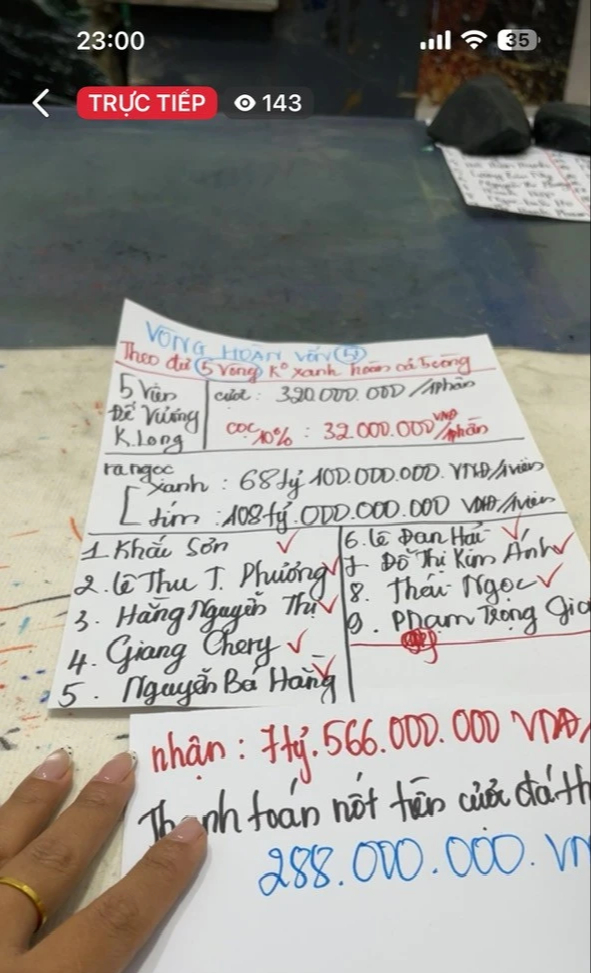 23:00
35
TRỰC TIẾP
143
VÒNG HOÀN VỐN (5)
Theo đủ 5 vòng K° xanh hoàn cả 5 vòng
5 Viên
Đế Vương
K.Long
cược : 320.000.000 /1phần
cọc 10% : 32.000.000 VNĐ/1phần
ra ngọc
xanh : 68tỷ 100.000.000. VNĐ/1viên
tím : 108tỷ.000.000.000 VNĐ/1viên
1. Khải Sơn
2. Lê Thu T. Phương
3. Hằng Nguyễn Thị
4. Giang Chery
5. Nguyễn Bá Hằng
6. Lê Đan Hải
7. Đỗ Thị Kim Ánh
8. Thái Ngọc
9. Phạm Trọng Gia
nhận : 7tỷ.566.000.000 VNĐ/
Thanh toán nốt tiền cược đá th
288.000.000. VN